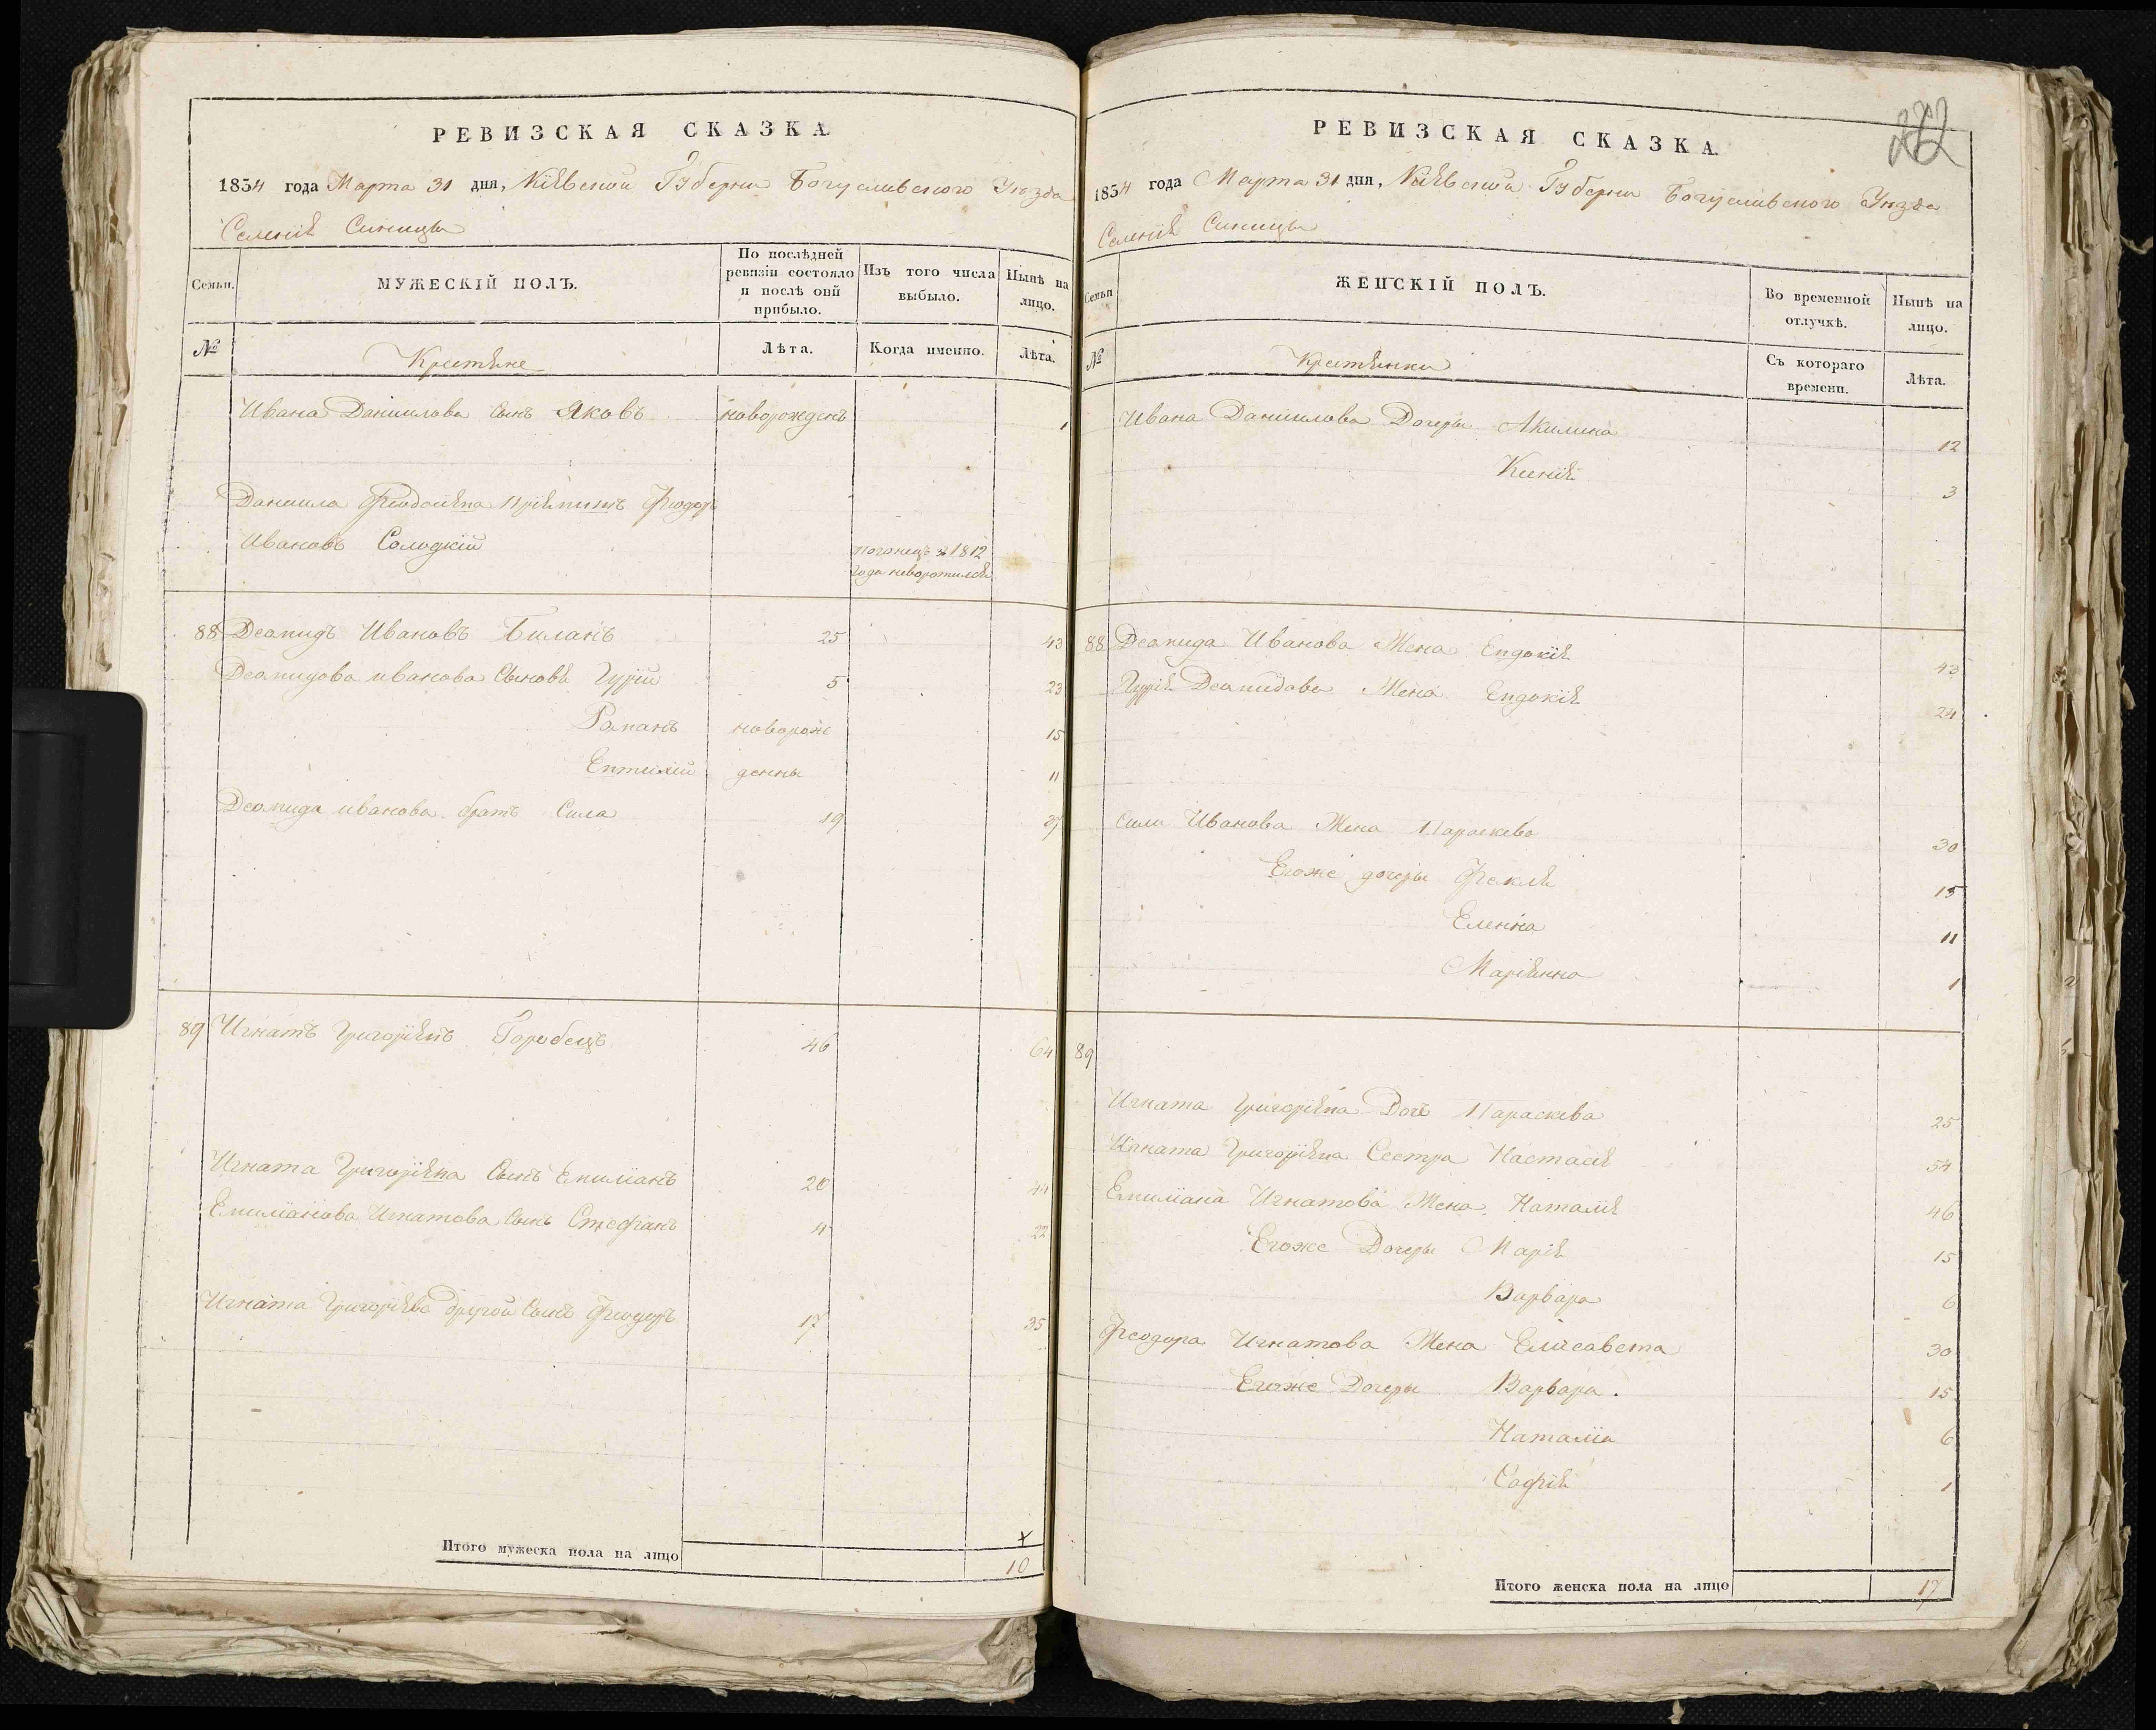 РЕВИЗСКАЯ СКАЗКА.
1854 года Марта 31 дня, Кіевской Губерніи Богуславского Уезда
Селенія Синицы
Семьи.
МУЖЕСКІЙ ПОЛЪ.
По послѣдней ревизіи состояло и послѣ оній прибыло.
Изъ того числа выбыло.
Нынѣ на лицо.
№
Крестяне
Лѣта.
Когда именно.
Лѣта.
Ивана Даниилова Сынъ Яковъ новорожденъ 1
Даниила Феодосіева Пріемышъ Феодоръ
Ивановъ Солодкій
погонецъ з 1812
года неворотился
88 Деомидъ Ивановъ Биланъ 25 43
Деомидова иванова Сыновя Гурій 5 23
Романъ новорож 15
Евтихій денны 11
Деомида иванова братъ Сила 19 37
89 Игнатъ Григоріевъ Горобецъ 46 64
Игната Григоріева Сынъ Емиліанъ 26 44
Емиліанова Игнатова Сынъ Стефанъ 4 22
Игната Григоріева другой Сынъ Феодоръ 17 35
Итого мужеска пола на лицо 10
272
РЕВИЗСКАЯ СКАЗКА.
1854 года Марта 31 дня, Кіевской Губерніи Богуславского Уезда
Селенія Синицы
Семьи
ЖЕНСКІЙ ПОЛЪ.
Во временной отлучкѣ.
Нынѣ на лицо.
№
Крестянки
Съ котораго времени.
Лѣта.
Ивана Даниилова Дочеры Акилина 12
Ксенія 3
88 Деомида Иванова Жена Евдокія 43
Гурія Деомидова Жена Евдокія 24
Силы Иванова Жена Параскева 30
Егоже дочеры Фекля 15
Еленна 11
Маріянна 1
89
Игната Григоріева Дочь Параскева 25
Игната Григоріева Сестра Настасія 54
Емиліана Игнатова Жена Наталія 46
Егоже Дочеры Марія 15
Варвара 6
Феодора Игнатова Жена Елисавета 30
Егоже Дочеры Варвара. 15
Наталіа 6
Софія 1
Итого женска пола на лицо 17